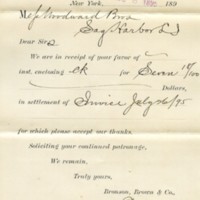 New York, 189
M J Woodward Bros
Sag Harbor L I
Dear Sirs
We are in receipt of your favor of
inst. enclosing ck for Seven 18/100
Dollars,
in settlement of Invoice July 26/95
for which please accept our thanks.
Soliciting your continued patronage,
We remain,
Truly yours,
Bronson, Brown & Co.